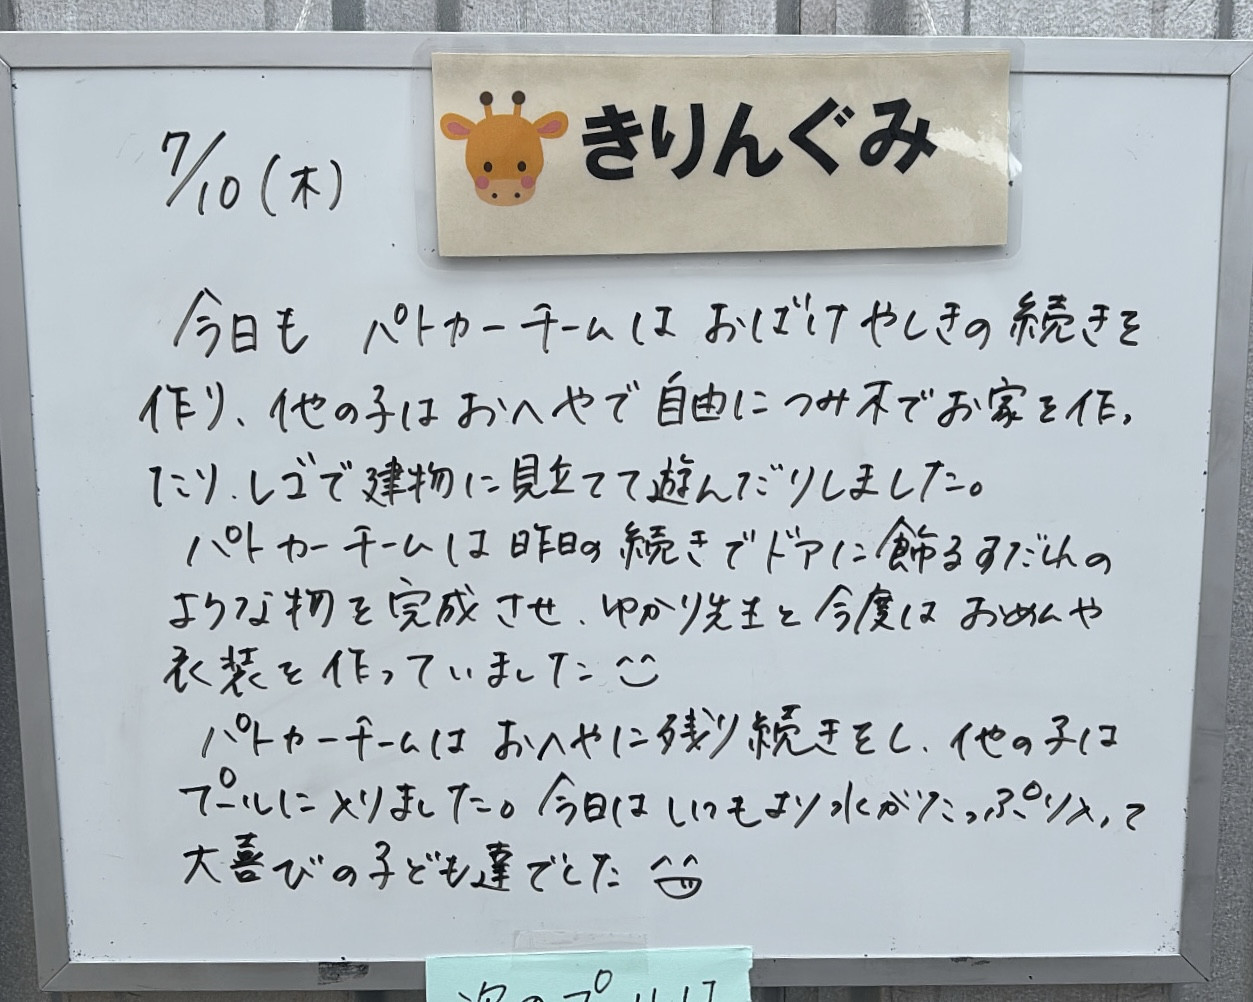 きりんぐみ
7/10(木)
今日も パトカーチームは おばけやしきの続きを
作り、他の子は おへやで 自由に つみ木で お家を作っ
たり、レゴで建物に見立てて遊んだりしました。
パトカーチームは昨日の続きでドアに飾るすだれの
ような物を完成させ、ゆかり先生と今度は おめんや
衣装を作っていました
パトカーチームは おへやに残り続きをし、他の子は
プールに入りました。今日は いつもより水がたっぷり入って
大喜びの子ども達でした
次のプールは